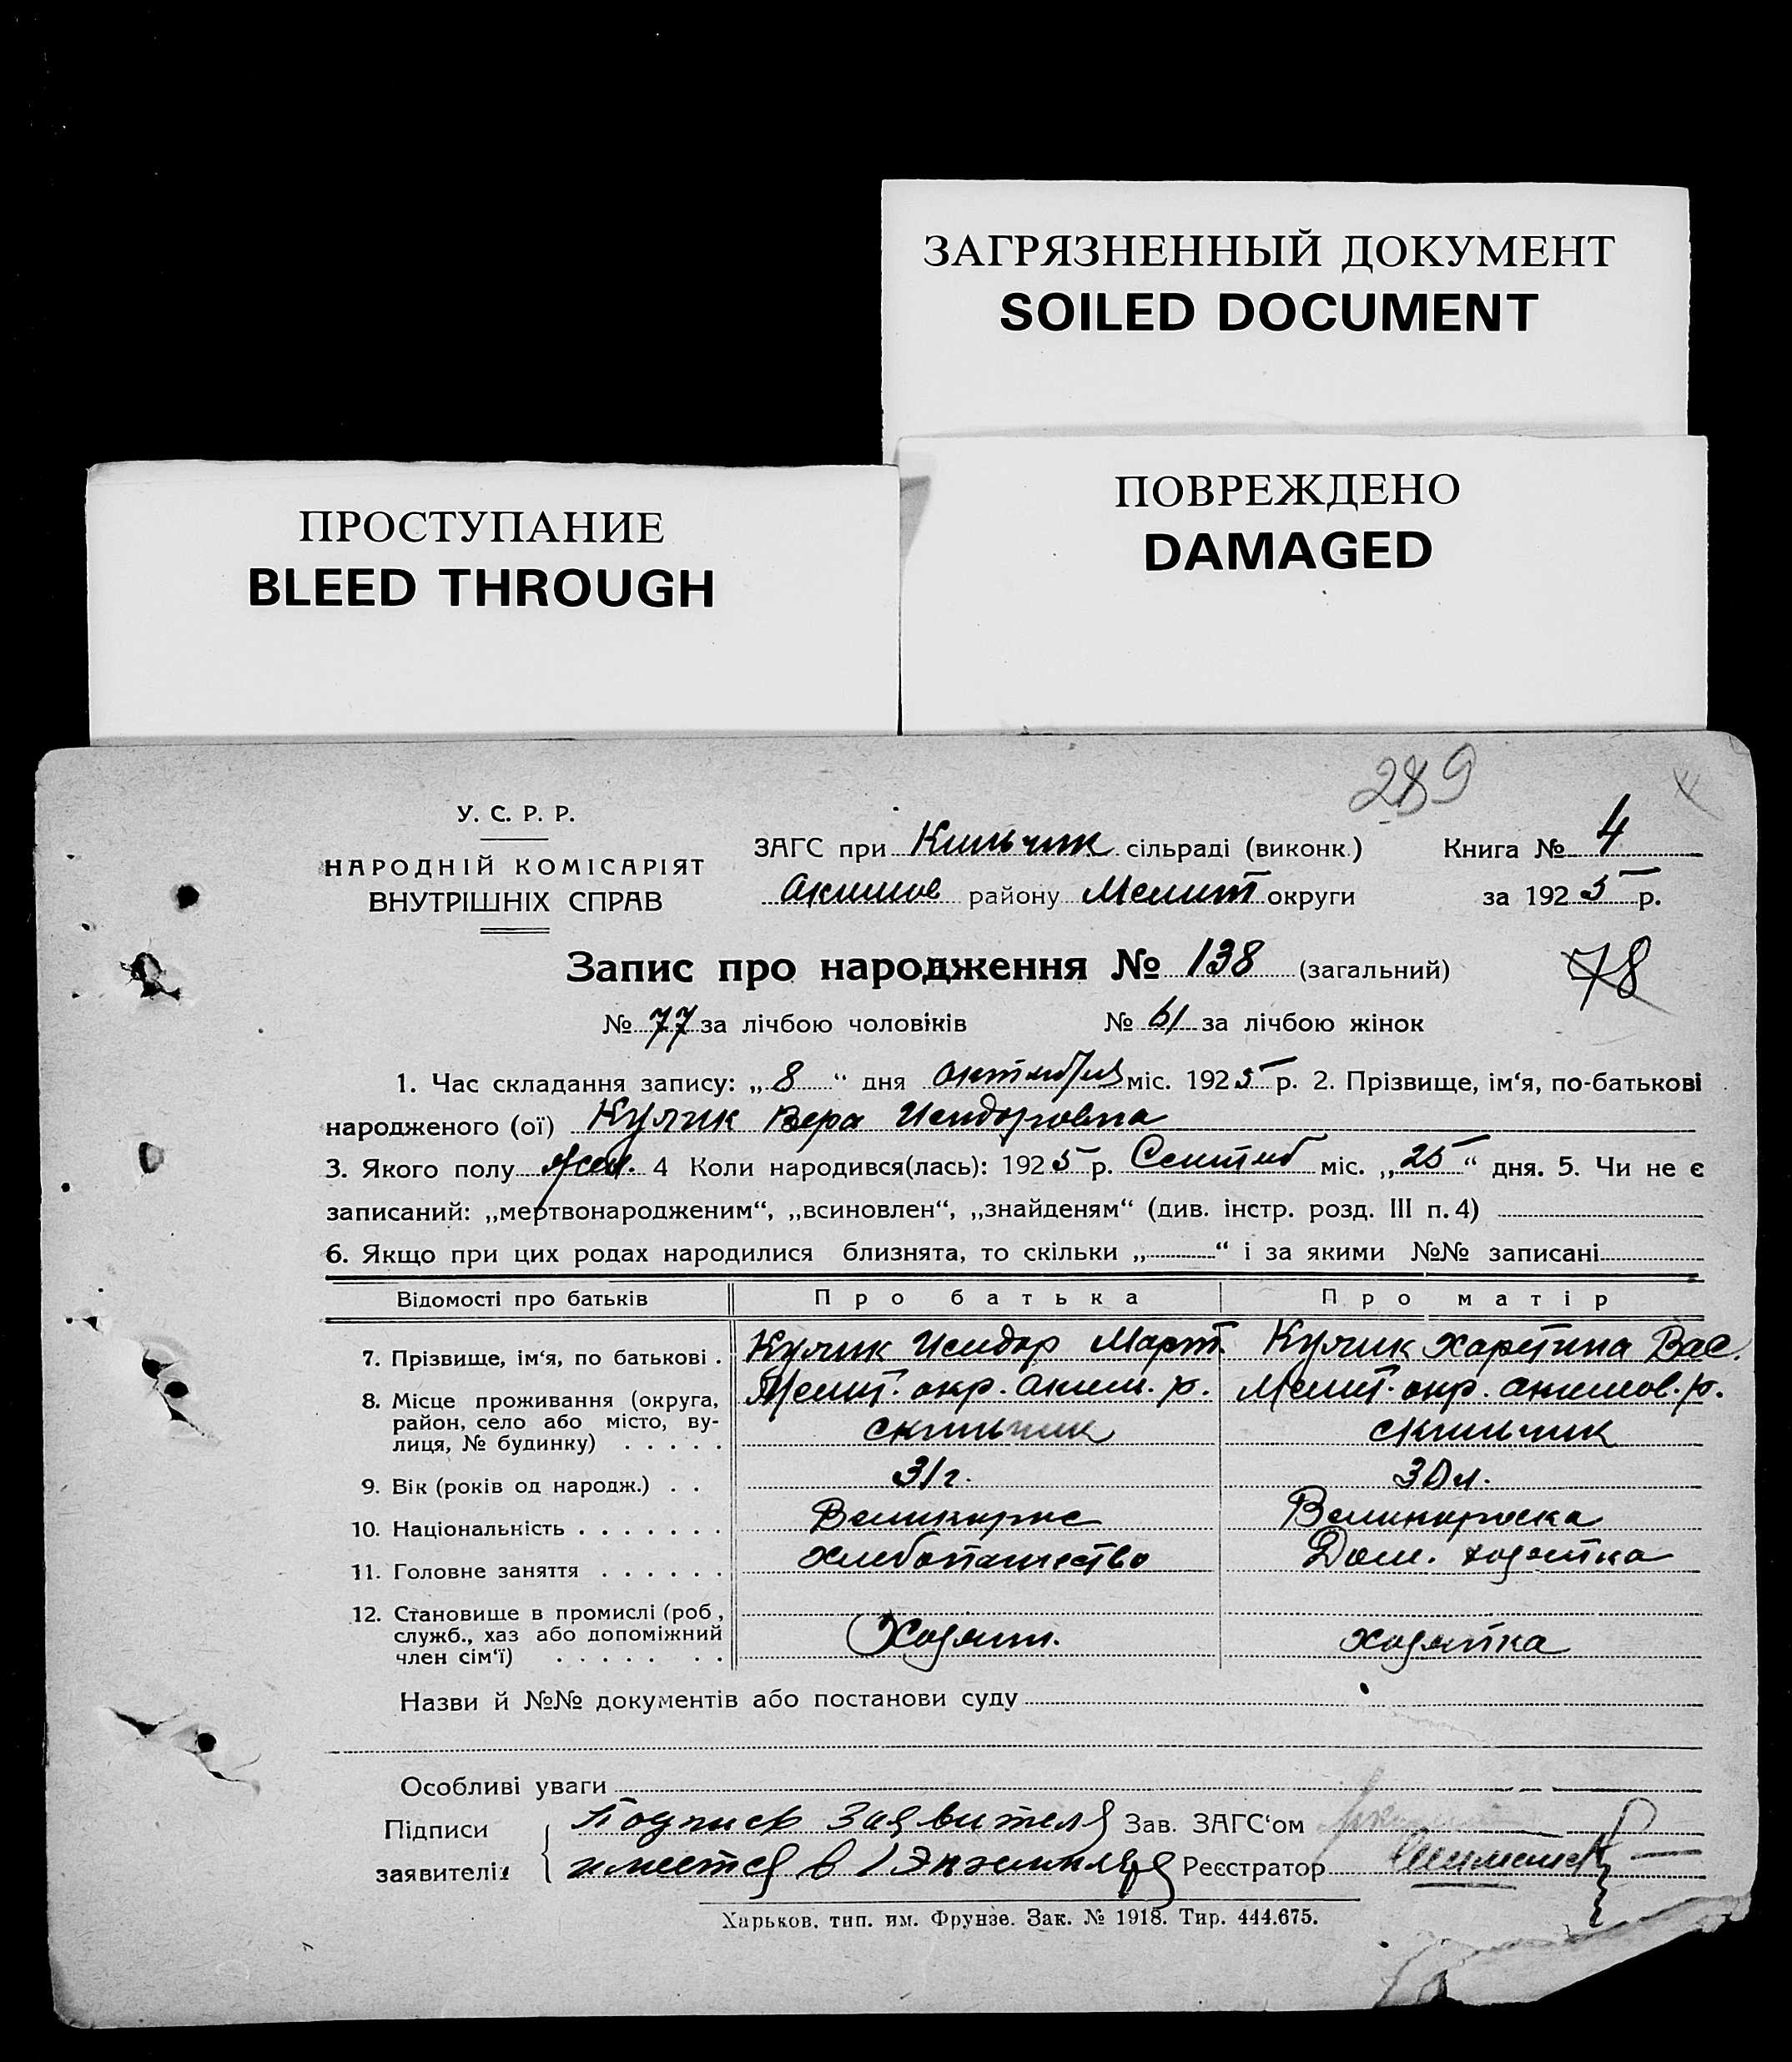 ЗАГРЯЗНЕННЫЙ ДОКУМЕНТ
SOILED DOCUMENT
ПОВРЕЖДЕНО
DAMAGED
ПРОСТУПАНИЕ
BLEED THROUGH
289
У. С. Р. Р.
НАРОДНІЙ КОМІСАРІЯТ
ВНУТРІШНІХ СПРАВ
ЗАГС при Кильчик сільраді (виконк.) Книга № 4
Акимов району Мелит округи за 1925 р.
Запис про народження № 138 (загальний) 78
№ 77 за лічбою чоловіків № 61 за лічбою жінок
1. Час складання запису: „8“ дня октября міс. 1925 р. 2. Прізвище, ім‘я, по-батькові
народженого (ої) Кулик Вера Исидоровна
3. Якого полу жен. 4 Коли народився(лась): 1925 р. Сентяб міс. „25“ дня. 5. Чи не є
записаний: „мертвонародженим“, „всиновлен“, „знайденям“ (див. інстр. розд. III п. 4)
6. Якщо при цих родах народилися близнята, то скільки „ “ і за якими №№ записані
Відомості про батьків Про батька Про матір
7. Прізвище, ім‘я, по батькові . Кулик Исидор Март. Кулик Харетина Вас.
8. Місце проживання (округа, Мелит. окр. Аким. р. Мелит. окр. Акимов. р.
район, село або місто, ву-
лиця, № будинку) . . . . . с Кильчик с Кильчик
9. Вік (років од народж.) . . 31 г. 30 л.
10. Національність . . . . . . . Великорус Великоруска
11. Головне заняття . . . . . . Хлебопашество Дом. хозяйка
12. Становище в промислі (роб,
служб., хаз або допоміжний Хозяин. хозяйка
член сім‘ї) . . . . . . .
Назви й №№ документів або постанови суду
Особливі уваги
Підписи Подпись заявителя Зав. ЗАГС‘ом
заявителів имеется в 1 Экземпляре Реєстратор
Харьков. тип. им. Фрунзе. Зак. № 1918. Тир. 444.675.